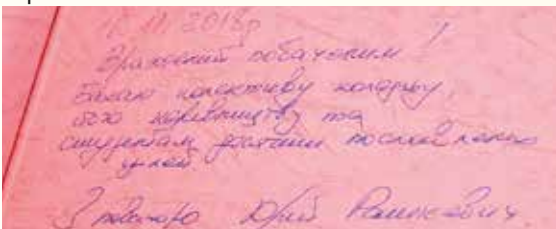 11.2018р
Вражений побаченим!
Бажаю колективу коледжу,
його керівництву та
студентам досягти поставлених
цілей.
З повагою Юрій